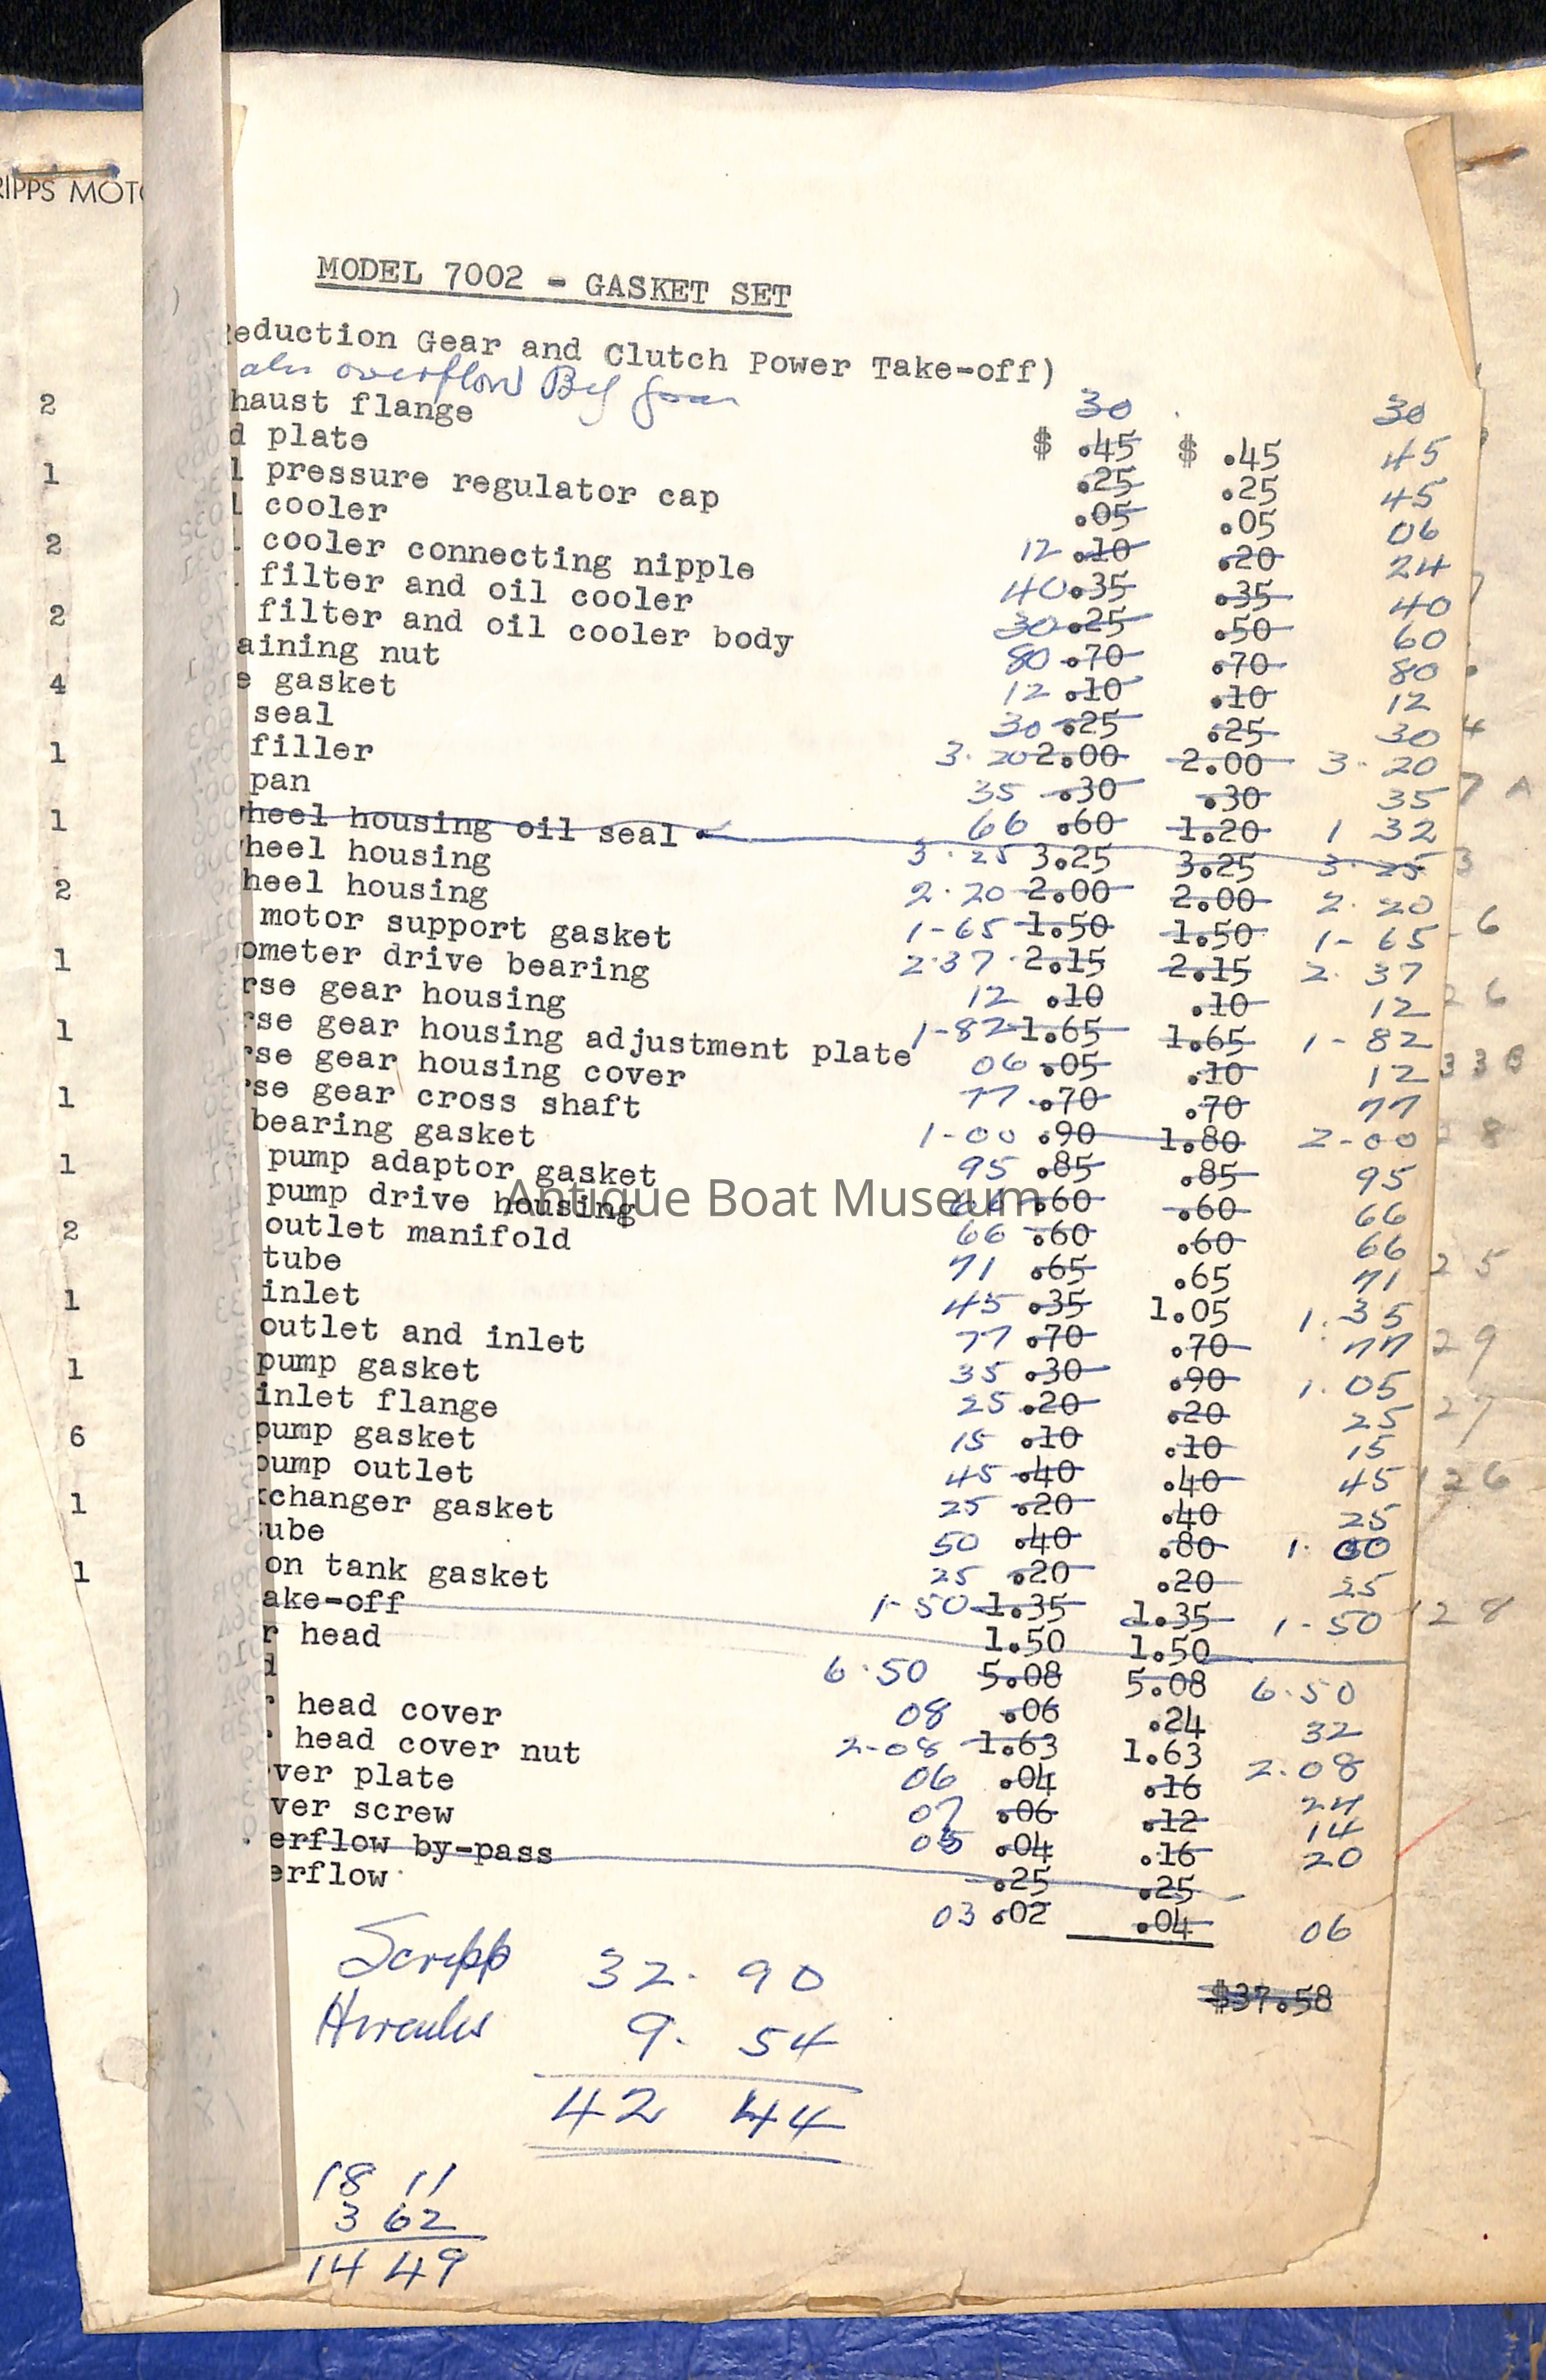 RIPPS MOTO
MODEL 7002 - GASKET SET
eduction Gear and Clutch Power Take-off)
overflow
30 30
2 haust flange $ .45 $ .45 45
d plate .25 .25 45
1 l pressure regulator cap .05 .05 06
l cooler 12 .10 .20 24
2 cooler connecting nipple 40 .35 .35 40
filter and oil cooler 30 .25 .50 60
2 filter and oil cooler body 80 .70 .70 80
aining nut 12 .10 .10 12
4 e gasket 30 .25 .25 30
seal 3.20 2.00 2.00 3.20
1 filler 35 .30 .30 35
pan 66 .60 1.20 1 32
1 heel housing oil seal 3.25 3.25 3.25 3.25
heel housing 2.20 2.00 2.00 2.20
2 heel housing 1-65 1.50 1.50 1-65
motor support gasket 2.37 2.15 2.15 2.37
1 ometer drive bearing 12 .10 .10 12
rse gear housing 1-82 1.65 1.65 1-82
1 rse gear housing adjustment plate 06 .05 .10 12
rse gear housing cover 77 .70 .70 77
1 rse gear cross shaft 1-00 .90 1.80 2-00
bearing gasket 95 .85 .85 95
1 pump adaptor gasket 66 .60 .60 66
pump drive housing 66 .60 .60 66
2 outlet manifold 71 .65 .65 71
tube 45 .35 1.05 1.35
1 inlet 77 .70 .70 77
outlet and inlet 35 .30 .90 1.05
1 pump gasket 25 .20 .20 25
inlet flange 15 .10 .10 15
6 pump gasket 45 .40 .40 45
pump outlet 25 .20 .40 25
1 xchanger gasket 50 .40 .80 1.00
ube 25 .20 .20 25
1 on tank gasket 1-50 1.35 1.35 1-50
ake-off 1.50 1.50
r head 6.50 5.08 5.08 6.50
d 08 .06 .24 32
head cover 2-08 1.63 1.63 2.08
head cover nut 06 .04 .16 24
ver plate 07 .06 .12 14
ver screw 05 .04 .16 20
erflow by-pass .25 .25
erflow 03 .02 .04 06
$37.58
Scripp 32.90
Hercules 9.54
42 44
18 11
3 62
14 49
Antique Boat Museum